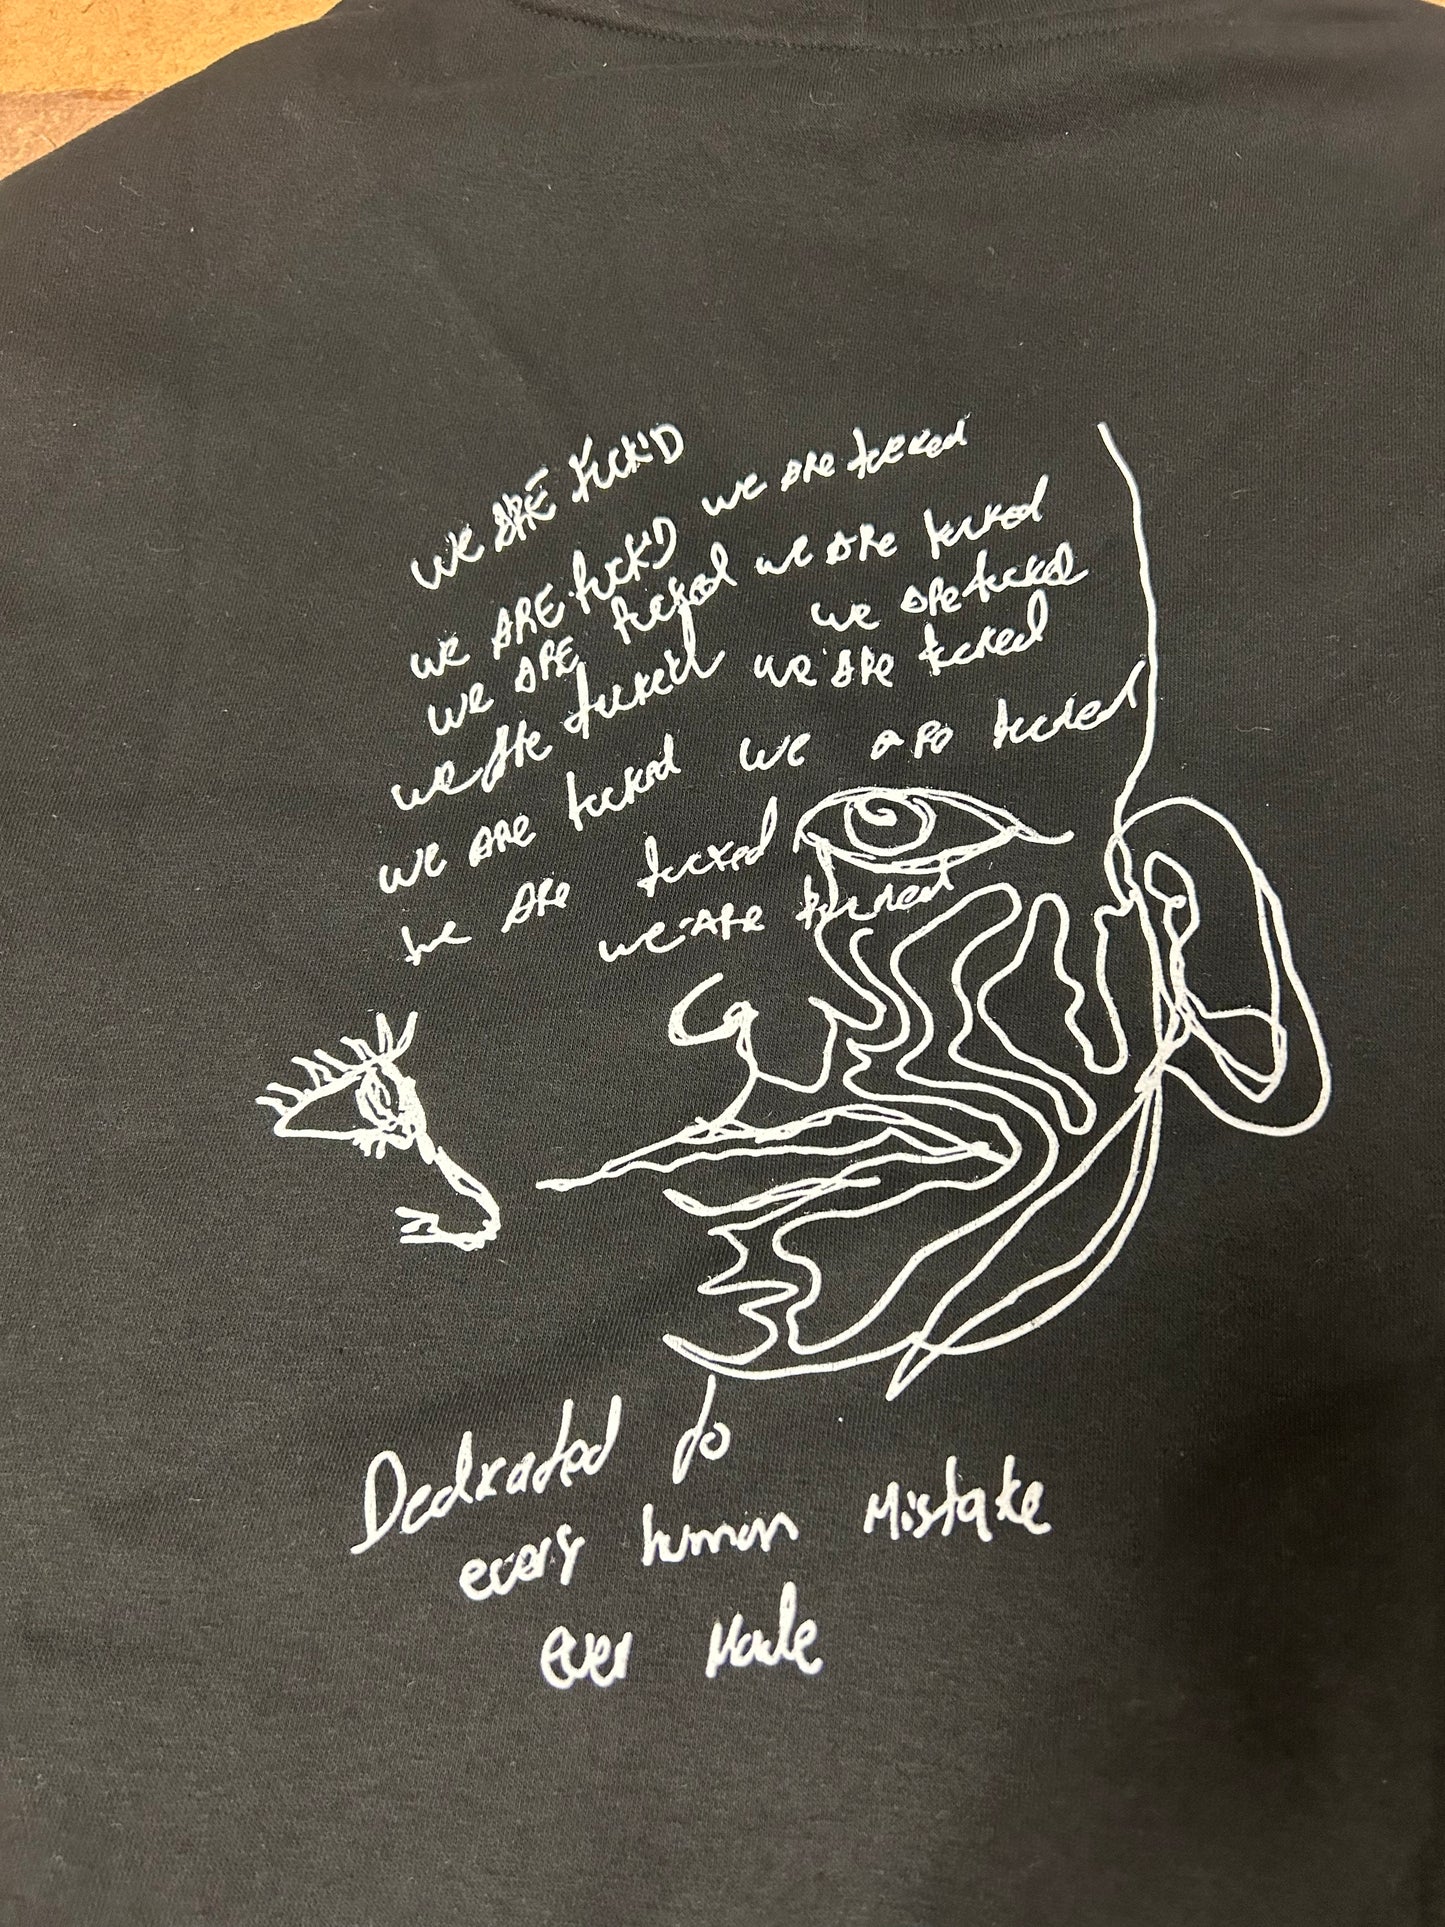 WE ARE FUCK'D
WE ARE FUCK'D we are fucked
WE ARE fucked we are fucked
we are fucked we are fucked
we are fucked
we are fucked we are fucked
we are fucked
we are fucked
Dedicated to
every human Mistake
ever Made